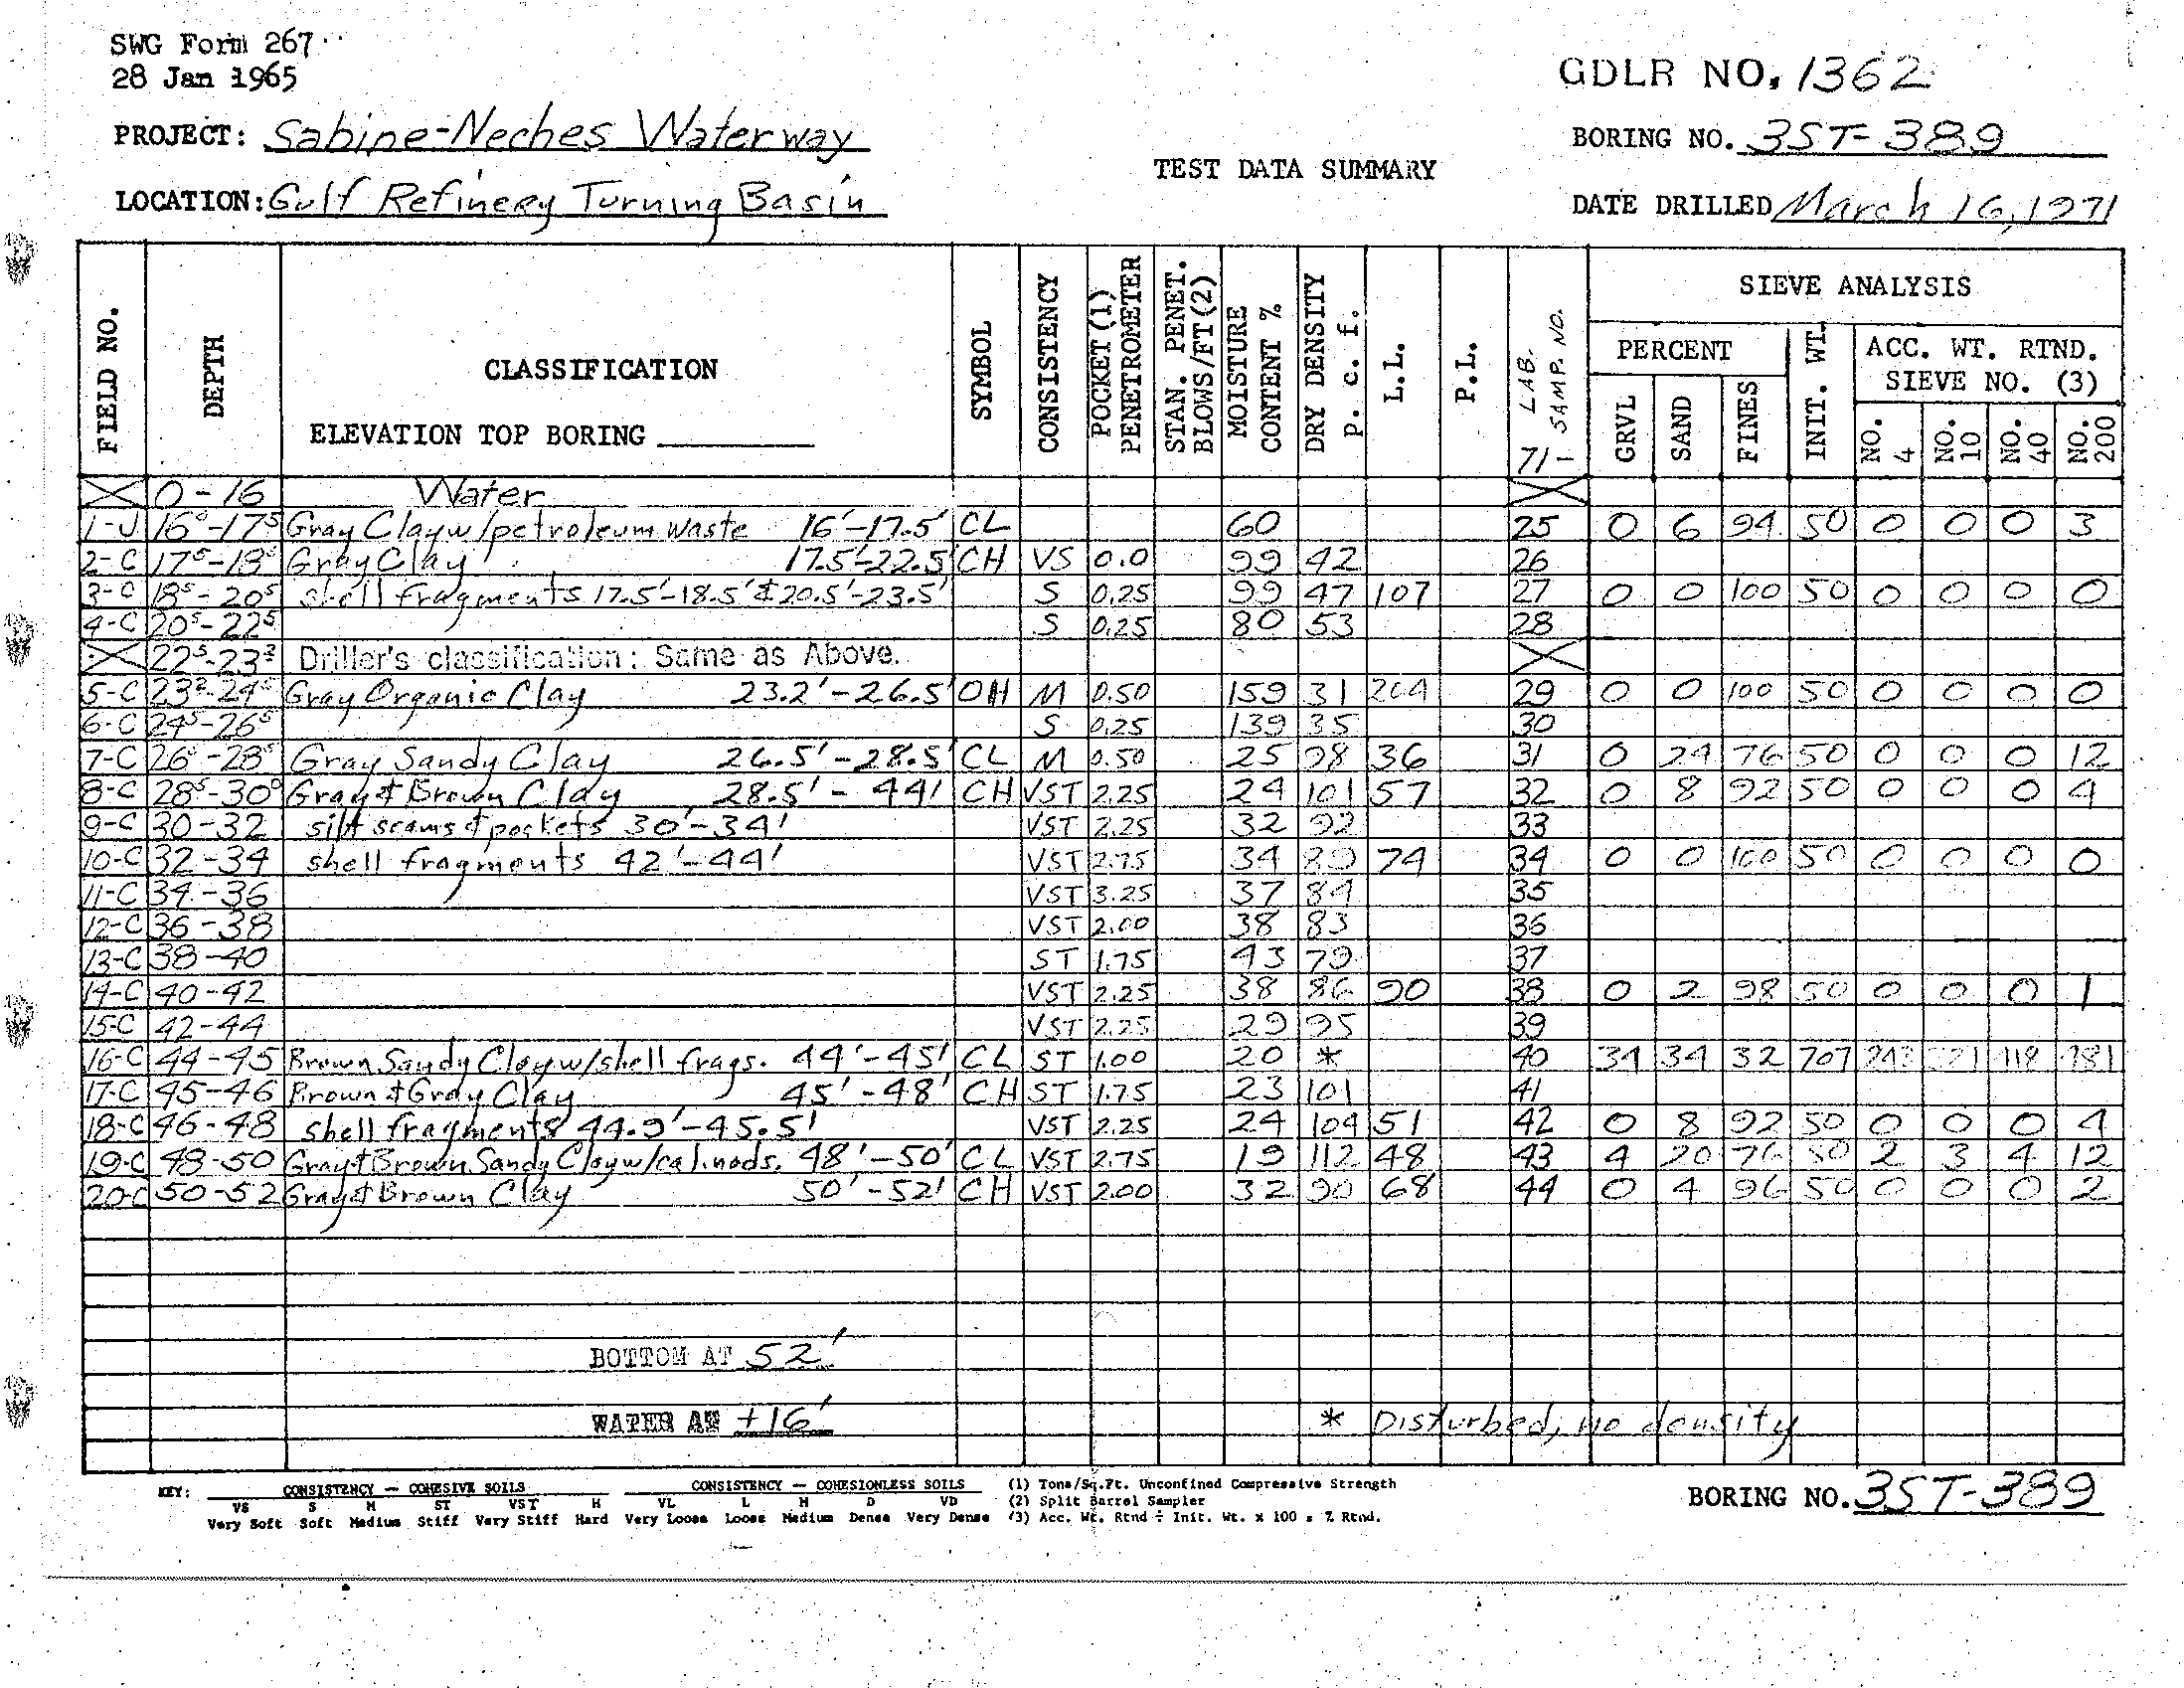 SWG Form 267
28 Jan 1965
GDLR NO. 1362
PROJECT: Sabine-Neches Waterway
BORING NO. 3ST-389
TEST DATA SUMMARY
LOCATION: Gulf Refinery Turning Basin
DATE DRILLED March 16, 1971
FIELD NO. DEPTH CLASSIFICATION SYMBOL CONSISTENCY POCKET (1) PENETROMETER STAN. PENET. BLOWS/FT (2) MOISTURE CONTENT % DRY DENSITY P. c. f. L.L. P.L. LAB. SAMP. NO. 71- SIEVE ANALYSIS
PERCENT GRVL SAND FINES INIT. WT. ACC. WT. RTND. SIEVE NO. (3) NO. 4 NO. 10 NO. 40 NO. 200
ELEVATION TOP BORING
0-16 Water
1-J 16⁰-17⁵ Gray Clay w/petroleum waste 16'-17.5' CL 60 25 0 6 94 50 0 0 0 3
2-C 17⁵-18⁵ Gray Clay 17.5'-22.5' CH VS 0.0 99 42 26
3-C 18⁵-20⁵ shell fragments 17.5'-18.5' & 20.5'-23.5' S 0.25 99 47 107 27 0 0 100 50 0 0 0 0
4-C 20⁵-22⁵ S 0.25 80 53 28
22⁵-23² Driller's classification: Same as Above.
5-C 23²-24⁵ Gray Organic Clay 23.2'-26.5' OH M 0.50 159 31 204 29 0 0 100 50 0 0 0 0
6-C 24⁵-26⁵ S 0.25 139 35 30
7-C 26⁵-28⁵ Gray Sandy Clay 26.5'-28.5' CL M 0.50 25 98 36 31 0 24 76 50 0 0 0 12
8-C 28⁵-30⁰ Gray & Brown Clay 28.5'-44' CH VST 2.25 24 101 57 32 0 8 92 50 0 0 0 4
9-C 30-32 silt seams & pockets 30'-34' VST 2.25 32 92 33
10-C 32-34 shell fragments 42'-44' VST 2.75 34 89 74 34 0 0 100 50 0 0 0 0
11-C 34-36 VST 3.25 37 84 35
12-C 36-38 VST 2.00 38 83 36
13-C 38-40 ST 1.75 43 79 37
14-C 40-42 VST 2.25 38 86 90 38 0 2 98 50 0 0 0 1
15-C 42-44 VST 2.25 29 95 39
16-C 44-45 Brown Sandy Clay w/shell frags. 44'-45' CL ST 1.00 20 * 40 34 34 32 707 481
17-C 45-46 Brown & Gray Clay 45'-48' CH ST 1.75 23 101 41
18-C 46-48 shell fragments 44.9'-45.5' VST 2.25 24 104 51 42 0 8 92 50 0 0 0 4
19-C 48-50 Gray & Brown Sandy Clay w/cal.nods. 48'-50' CL VST 2.75 19 112 48 43 4 20 76 50 2 3 4 12
20-C 50-52 Gray & Brown Clay 50'-52' CH VST 2.00 32 90 68 44 0 4 96 50 0 0 0 2
BOTTOM AT 52'
WATER AT +16'
* Disturbed, no density
KEY: CONSISTENCY — COHESIVE SOILS CONSISTENCY — COHESIONLESS SOILS (1) Tons/Sq.Ft. Unconfined Compressive Strength
VS S M ST VST H VL L M D VD (2) Split Barrel Sampler
Very Soft Soft Medium Stiff Very Stiff Hard Very Loose Loose Medium Dense Very Dense (3) Acc. Wt. Rtnd ÷ Init. Wt. x 100 = % Rtnd.
BORING NO. 3ST-389